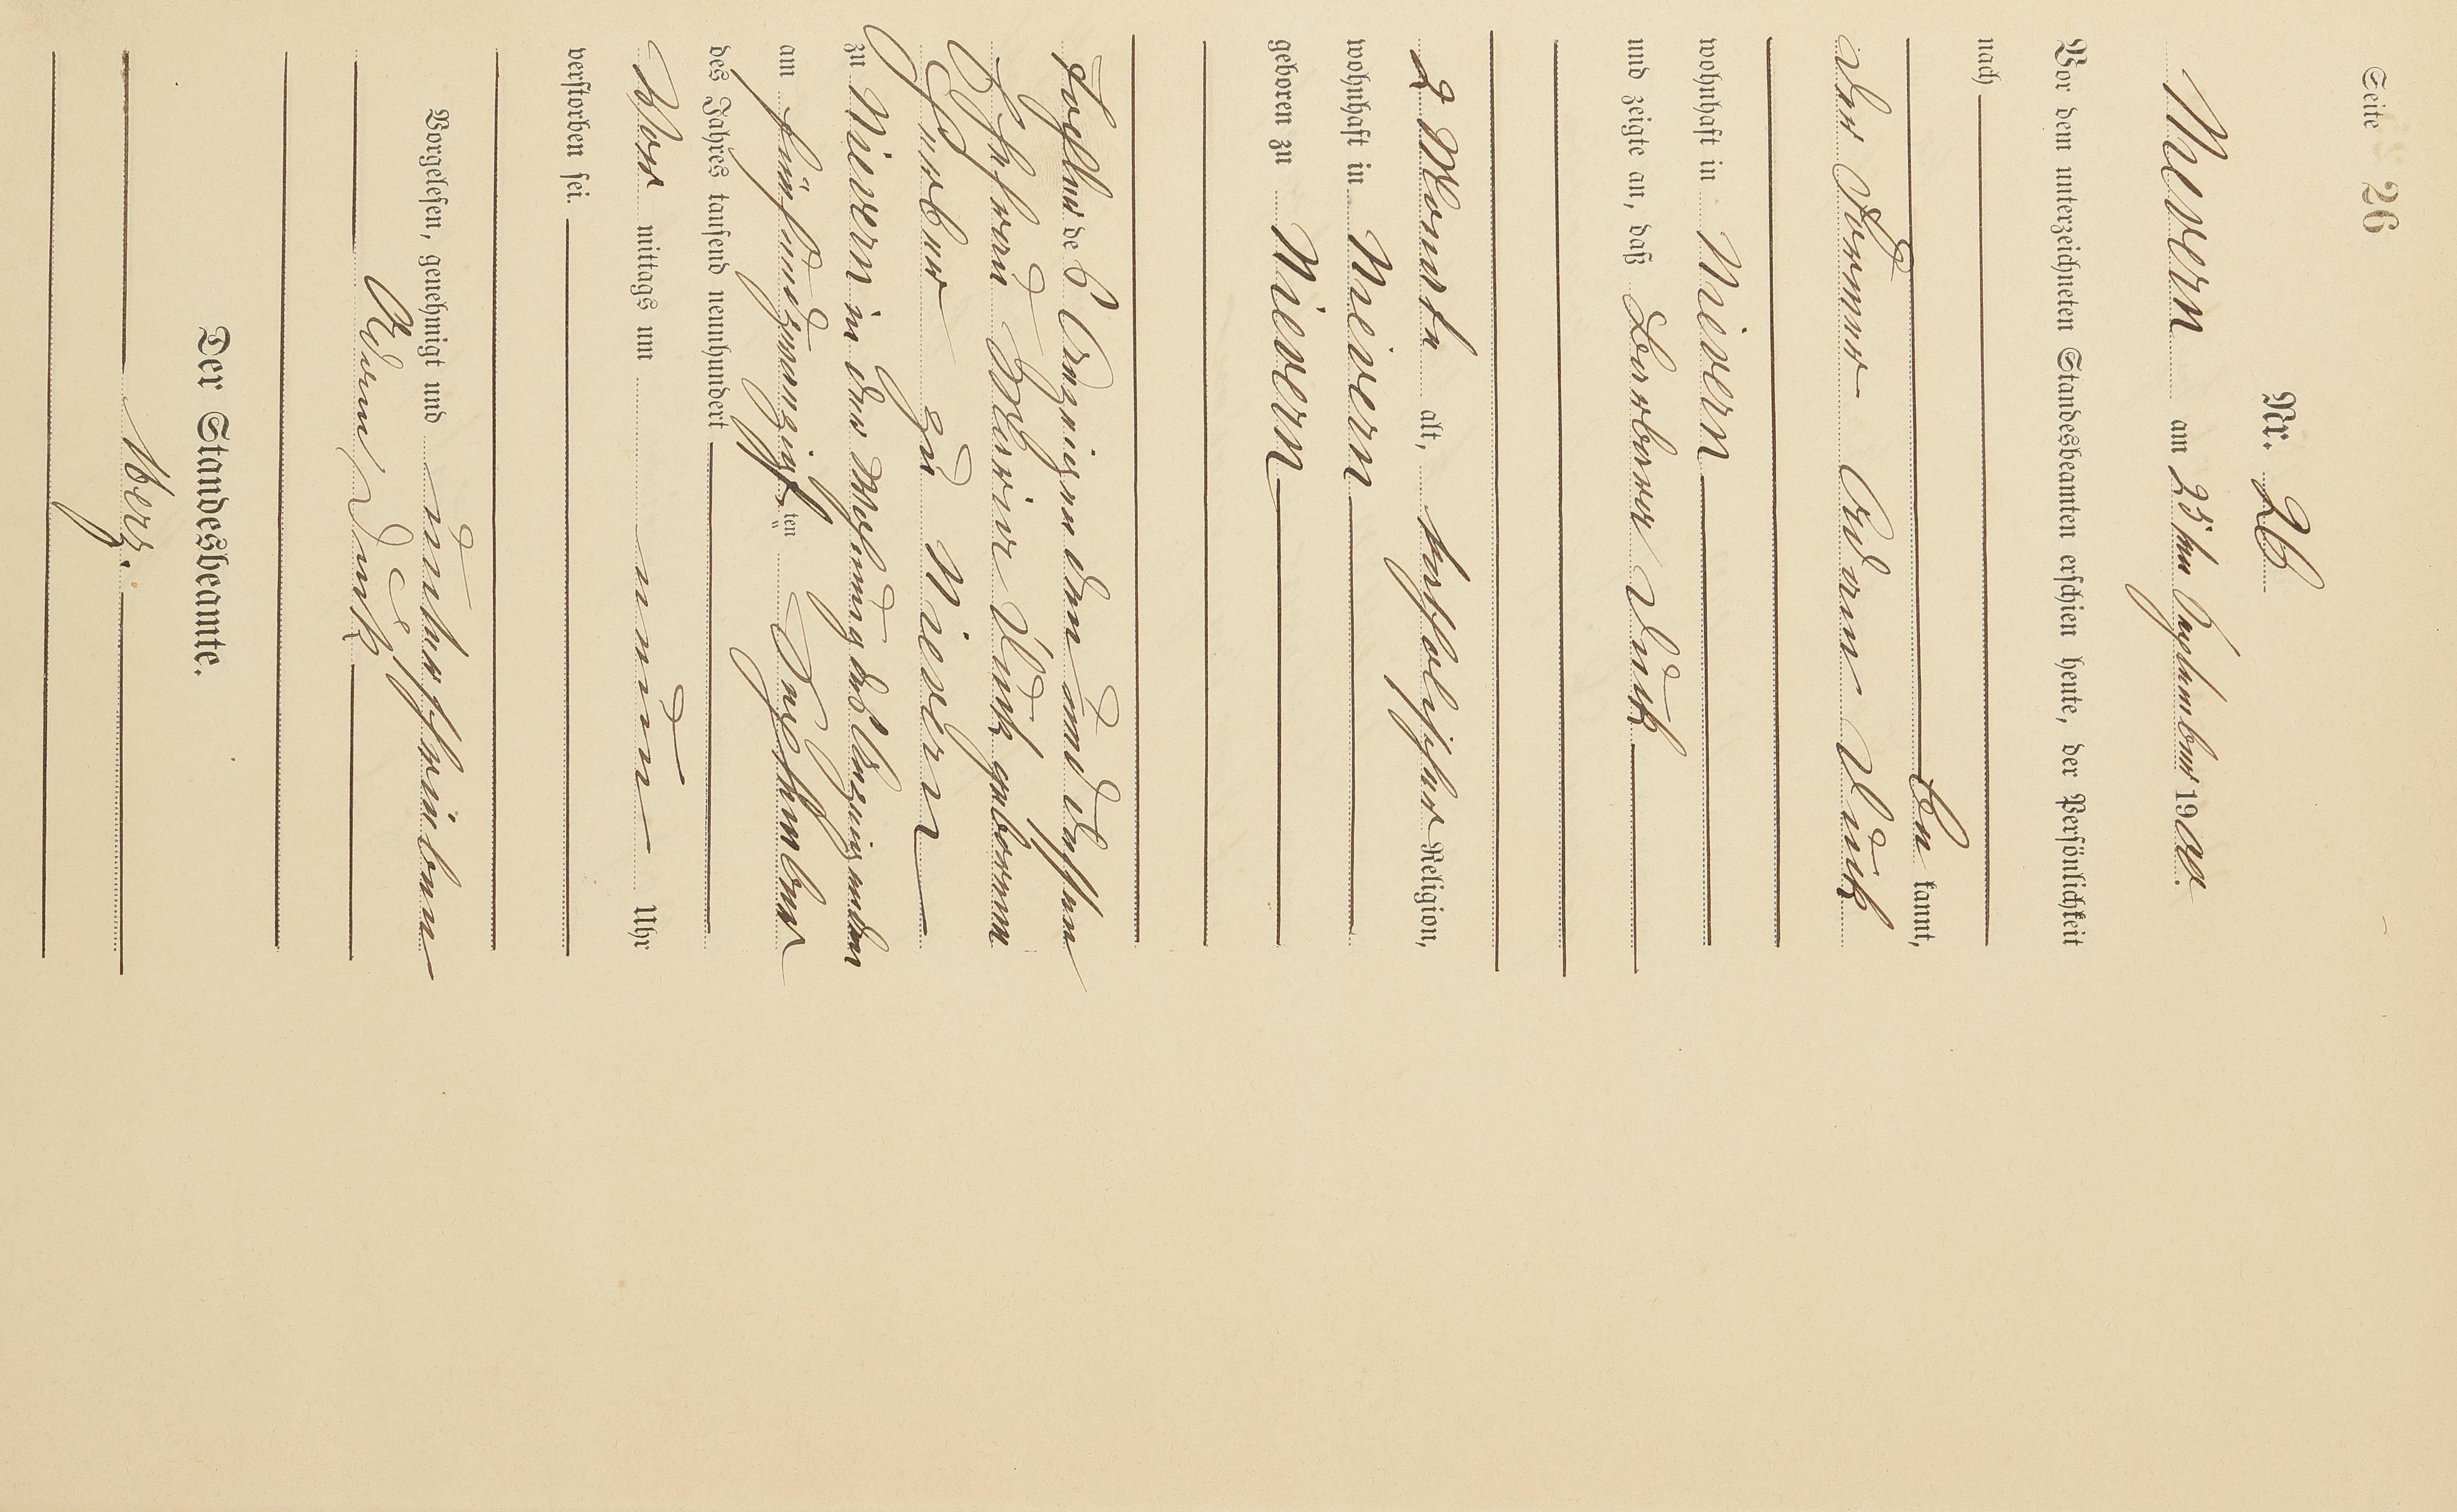 Seite 26
Nr. 26
Nievern am 25ten September 1900.
Vor dem unterzeichneten Standesbeamten erschien heute, der Persönlichkeit
nach
be kannt,
der Former Adam Dünk
wohnhaft in Nievern
und zeigte an, daß Barbara Dünk
2 Monate alt, katholischer Religion,
wohnhaft in Nievern
geboren zu Nievern
Tochter des Anzeigenden und dessen
Ehefrau Maria Dünk geborenen
zu Nievern
zu Nievern in der Wohnung des Anzeigenden
am fünfundzwanzigsten September
des Jahres tausend neunhundert
Vor mittags um neun Uhr
verstorben sei.
Vorgelesen, genehmigt und unterschrieben
Adam Dünk
Der Standesbeamte.